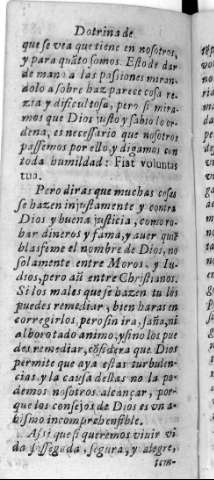 Dotrina de
que se vea que tiene en nosotros,
y para quãto somos. Esto de dar
de mano a las passiones miran-
dolo a sobre haz parece cosa re-
zia y dificultosa, pero si mira-
mos que Dios justo y sabio lo or-
dena, es necessario que nosotros
passemos por ello, y digamos con
toda humildad: Fiat voluntas
tua.
Pero diràs que muchas cosas
se hazen injustamente y contra
Dios y buena justicia, como ro-
bar dineros y fama, y auer quiẽ
blasfeme el nombre de Dios, no
solamente entre Moros y Iu-
dios, pero aũ entre Christianos.
Si los males que se hazen tu los
puedes remediar, bien haras en
corregirlos, pero sin ira, saña, ni
alborotado animo, y si no los pue
des remediar, cõsidera que Dios
permite que aya estas turbulen-
cias y la causa dellas no la po-
demos nosotros alcançar, por-
que los consejos de Dios es vn a-
bismo incomprehensible.
Assi que si queremos viuir vi
da sossegada, segura, y alegre,